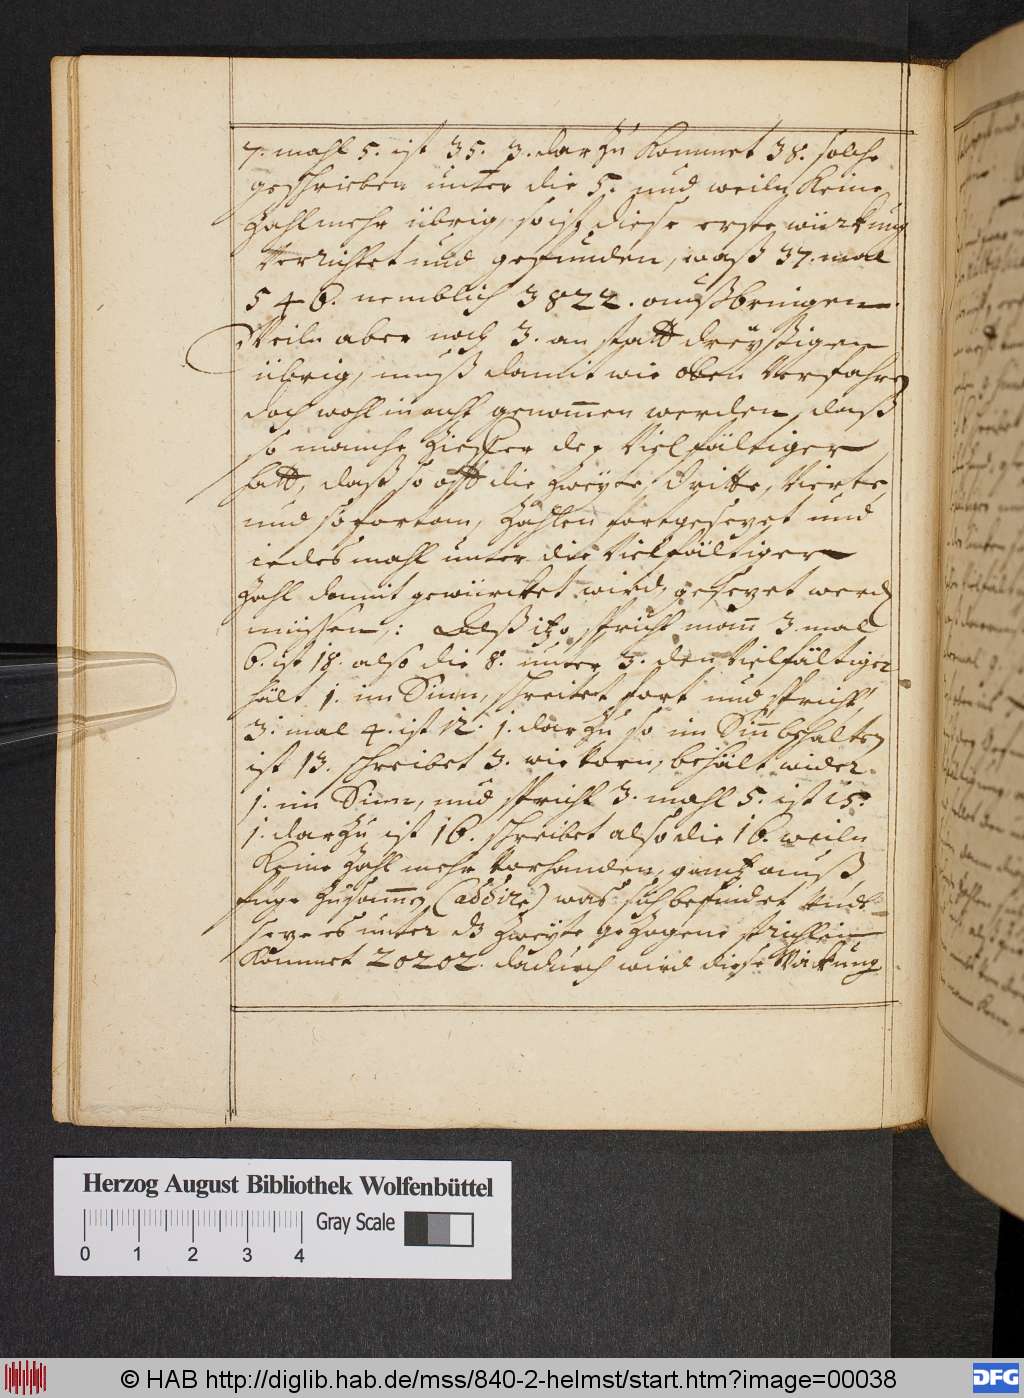 7. mahl 5. ist 35. 3. dar Zu Kommet 38. solche
geschrieben unter die 5. und weiln Keine
Zahl mehr übrig, so ist diese erste würkung
Verrichtet und gefunden, waß 37. mal
546. nemblich 3822. außbringen
Weiln aber noch 3. an statt dreÿsigen
übrig, muß damit wie oben Verfahren
doch wohl in acht genom̄en werden, daß
so manche Zieffer der Vielfältiger
hatt, daß so offt die Zweÿte, dritte, Vierte
und so fortan, Zahlen fortgesezet und
iedes mahl unter die Vielfältiger
Zahl damit gewürcket wird, gesezet werden
müssen: Alß itzo spricht man̄ 3. mal
6. ist 18. also die 8. unter 3. den Vielfältiger
hält 1. im Sinn, schreitet fort und spricht,
3. mal 4. ist 12. 1. dar Zu so im Sin̄ behalten
ist 13. schreibet 3. wie Vorn, behält wider
1. im Sinn, und spricht 3. mahl 5. ist 15.
1. dar Zu ist 16. schreibet also die 16. weiln
Keine Zahl mehr Vorhanden, gantz auß
füge Zusam̄en (addire) was sich befindet Und
seze es unter dz Zweÿte gezogene strichlein
Kommet 20202. dadurch wird diese Würkung
Herzog August Bibliothek Wolfenbüttel
Gray Scale
0 1 2 3 4
© HAB http://diglib.hab.de/mss/840-2-helmst/start.htm?image=00038
DFG